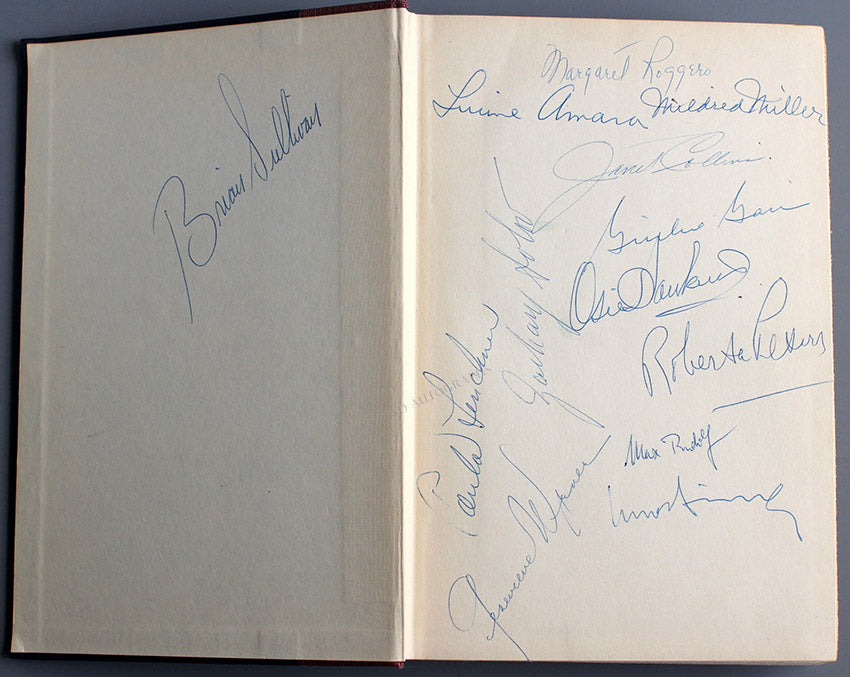 Brian Sullivan
Margaret Roggero
Lucine Amara Mildred Miller
Janet Collins
Osie Hawkins
Roberta Peters
Max Rudolf
Paula Lenchner
Zachary Solov
Genevieve Warner